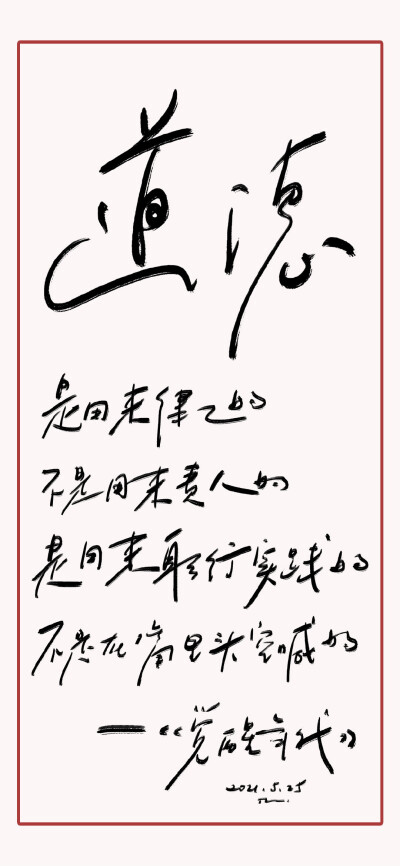 道德
是用来律己的
不是用来责人的
是用来躬行实践的
不是在窗里头空喊的
—《觉醒年代》
2021.5.25